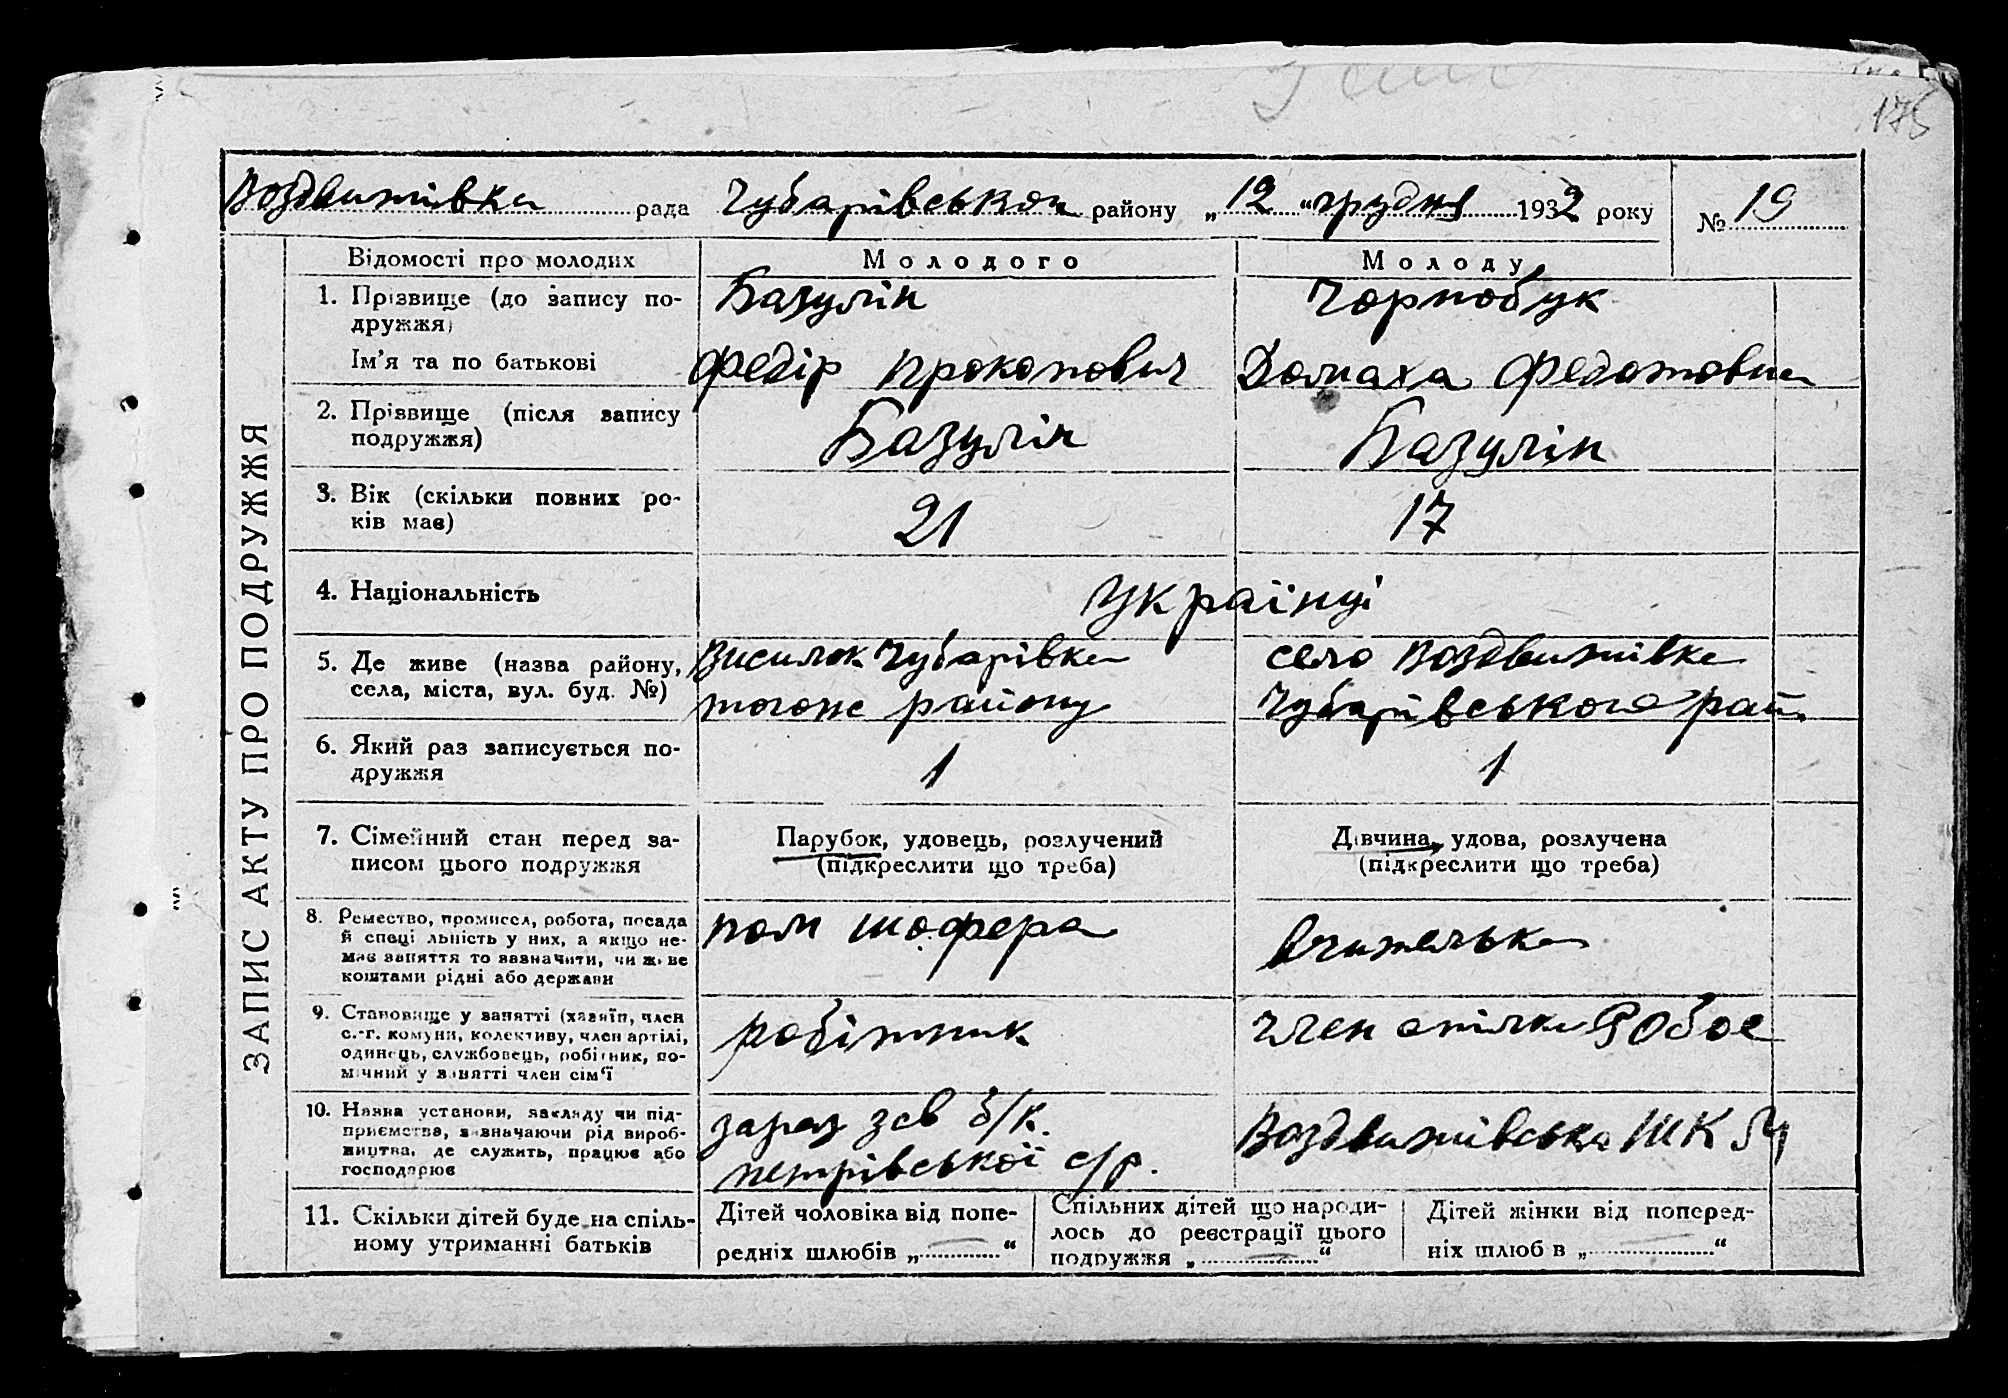 175
Воздвижівка рада Чубарівськои району „12“ грудня 1932 року № 19
ЗАПИС АКТУ ПРО ПОДРУЖЖЯ
Відомості про молодих Молодого Молоду
1. Прізвище (до запису по-
дружжя)
Базулін Чорнобук
Ім'я та по батькові Федір Прокопович Домаха Федотовна
2. Прізвище (після запису
подружжя)
Базулін Базулін
3. Вік (скільки повних ро-
ків має)
21 17
4. Національність Українці
5. Де живе (назва району,
села, міста, вул. буд. №)
Виселок Чубарівка
тогоже району
село Воздвижівка
Чубарівського рай.
6. Який раз записується по-
дружжя
1 1
7. Сімейний стан перед за-
писом цього подружжя
Парубок, удовець, розлучений
(підкреслити що треба)
Дівчина, удова, розлучена
(підкреслити що треба)
8. Ремество, промисел, робота, посада
й спеціальність у них, а якщо не-
має заняття то зазначити, чи живе
коштами рідні або держави
пом шофера
Вчителька
9. Становище у занятті (хазяїн, член
с.-г. комуни, колективу, член артілі,
одинець, службовець, робітник, по-
мічний у занятті член сім'ї
робітник
член спілки Робос
10. Назва установи, закладу чи під-
приємства, зазначаючи рід вироб-
ництва, де служить, працює або
господарює
зараз зав б/к.
петрівської с/р.
Воздвижівська ШКМ
11. Скільки дітей буде на спіль-
ному утриманні батьків
Дітей чоловіка від попе-
редніх шлюбів „ — “
Спільних дітей що народи-
лось до реєстрації цього
подружжя „ — “
Дітей жінки від поперед-
ніх шлюбів „ — “